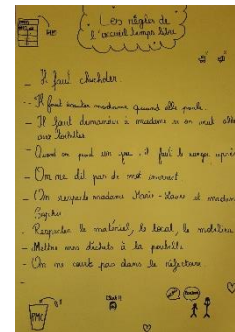 Les règles de
l'accueil temps libre
- Il faut chuchoter.
- Il faut écouter madame quand elle parle.
- Il faut demander à madame si on veut aller
aux toilettes
- Quand on prend un jeu, il faut le ranger après
- On ne dit pas de mot
- On respecte madame et madame
- Respecter le matériel, le local, le mobilier
- Mettre mes déchets à la poubelle
- On ne court pas dans le réfectoire.